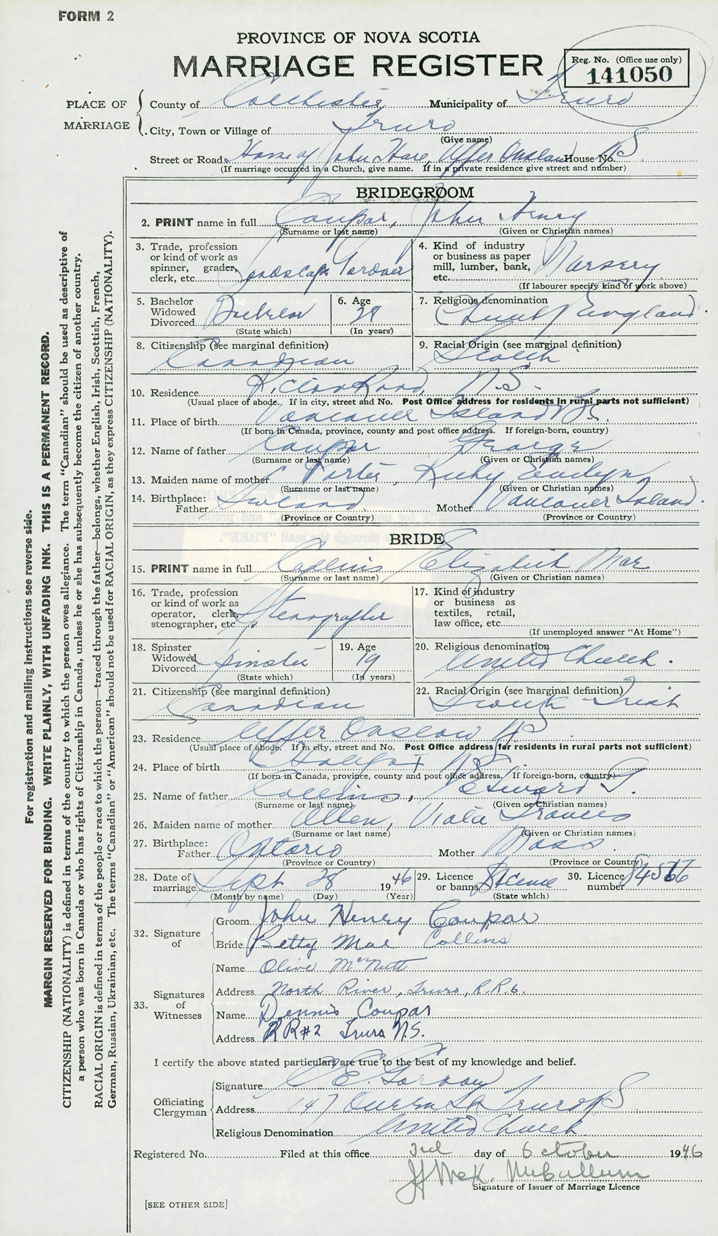 FORM 2
PROVINCE OF NOVA SCOTIA
MARRIAGE REGISTER
Reg. No. (Office use only)
141050
PLACE OF MARRIAGE
County of Colchester Municipality of Truro
City, Town or Village of Truro
(Give name)
Street or Road Home of John Hare, Upper Onslow House No. NS
(If marriage occurred in a Church, give name. If in a private residence give street and number)
BRIDEGROOM
2. PRINT name in full Coupar, John Henry
(Surname or last name) (Given or Christian names)
3. Trade, profession or kind of work as spinner, grader, clerk, etc. Landscape Gardner
4. Kind of industry or business as paper mill, lumber, bank, etc. Nursery
(If labourer specify kind of work above)
5. Bachelor Widowed Divorced Bachelor
(State which)
6. Age 28
(In years)
7. Religious denomination Church of England
8. Citizenship (see marginal definition) Canadian
9. Racial Origin (see marginal definition) Scotch
10. Residence N.S.
(Usual place of abode. If in city, street and No. Post Office address for residents in rural parts not sufficient)
11. Place of birth Vancouver Island BC
(If born in Canada, province, county and post office address. If foreign-born, country)
12. Name of father Coupar George
(Surname or last name) (Given or Christian names)
13. Maiden name of mother Porter, Evelyn
(Surname or last name) (Given or Christian names)
14. Birthplace: Father Mother Vancouver Island
(Province or Country) (Province or Country)
BRIDE
15. PRINT name in full Collins Elizabeth Mae
(Surname or last name) (Given or Christian names)
16. Trade, profession or kind of work as operator, clerk, stenographer, etc. Stenographer
17. Kind of industry or business as textiles, retail, law office, etc.
(If unemployed answer "At Home")
18. Spinster Widowed Divorced Spinster
(State which)
19. Age 19
(In years)
20. Religious denomination United Church.
21. Citizenship (see marginal definition) Canadian
22. Racial Origin (see marginal definition) Scotch-Irish
23. Residence Upper Onslow NS
(Usual place of abode. If in city, street and No. Post Office address for residents in rural parts not sufficient)
24. Place of birth Halifax NS
(If born in Canada, province, county and post office address. If foreign-born, country)
25. Name of father Collins, Edward
(Surname or last name) (Given or Christian names)
26. Maiden name of mother Allen, Viola Frances
(Surname or last name) (Given or Christian names)
27. Birthplace: Father Ontario Mother Mass
(Province or Country) (Province or Country)
28. Date of marriage Sept 28 1946
(Month by name) (Day) (Year)
29. Licence or banns Licence
(State which)
30. Licence number
32. Signature of
Groom John Henry Coupar
Bride Betty Mae Collins
33. Signatures of Witnesses
Name Olive McNutt
Address North River, Truro, R.R. 6.
Name Dennis Coupar
Address RR#2 Truro N.S.
I certify the above stated particulars are true to the best of my knowledge and belief.
Officiating Clergyman
Signature C. E. Gordon
Address 147 Queen St Truro NS
Religious Denomination United Church
Registered No. Filed at this office 3rd day of October 1946
McCullum
Signature of Issuer of Marriage Licence
[SEE OTHER SIDE]
For registration and mailing instructions see reverse side.
MARGIN RESERVED FOR BINDING. WRITE PLAINLY, WITH UNFADING INK. THIS IS A PERMANENT RECORD.
CITIZENSHIP (NATIONALITY) is defined in terms of the country to which the person owes allegiance. The term "Canadian" should be used as descriptive of
a person who was born in Canada or who has rights of Citizenship in Canada, unless he or she has subsequently become the citizen of another country.
RACIAL ORIGIN is defined in terms of the people or race to which the person—traced through the father—belongs, whether English, Irish, Scottish, French,
German, Russian, Ukrainian, etc. The terms "Canadian" or "American" should not be used for RACIAL ORIGIN, as they express CITIZENSHIP (NATIONALITY).